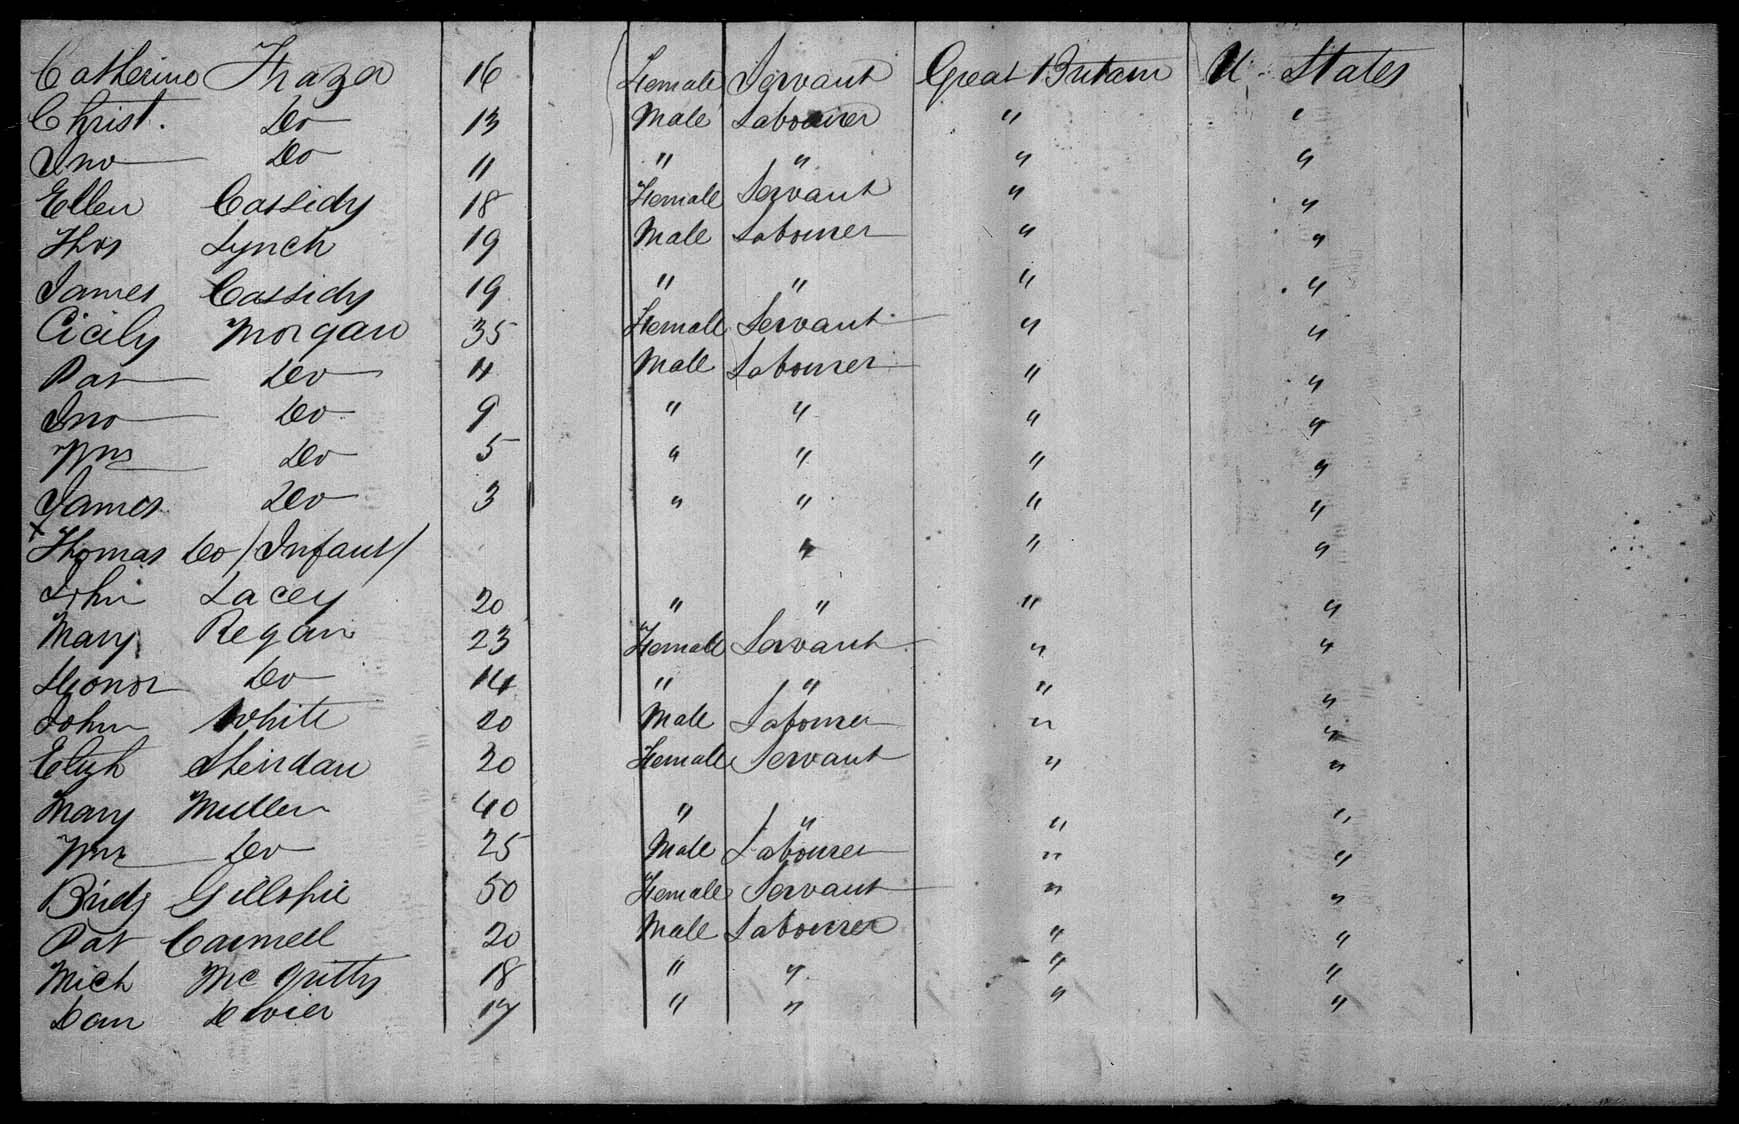 Catherine Frazer 16 Female Servant Great Britain U. States
Christ. Do 13 Male Labourer " "
Jno Do 11 " " " "
Ellen Cassidy 18 Female Servant " "
Thos Lynch 19 Male Labourer " "
James Cassidy 19 " " " "
Cicily Morgan 35 Female Servant " "
Pat Do 11 Male Labourer " "
Jno Do 9 " " " "
Wm Do 5 " " " "
James Do 3 " " " "
x Thomas Do /Infant/ " " "
John Lacey 20 " " " "
Mary Regan 23 Female Servant " "
Honor Do 14 " " " "
John White 20 Male Labourer " "
Elizh Sheridan 20 Female Servant " "
Mary Mullen 40 " " " "
Wm Do 25 Male Labourer " "
Bridg Gillspie 50 Female Servant " "
Pat 20 Male Labourer " "
Mich 18 " " " "
Dan 17 " " " "